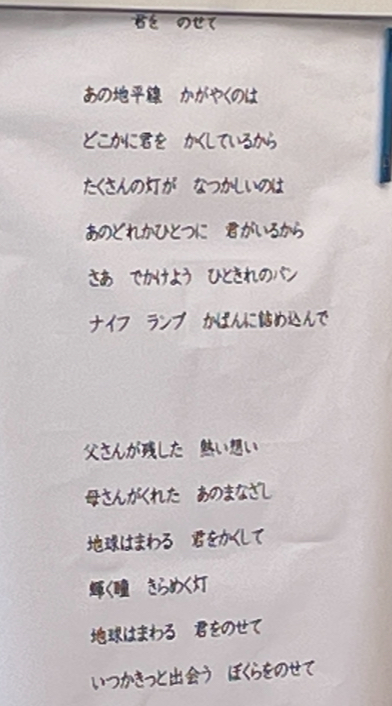 君を　のせて
あの地平線　かがやくのは
どこかに君を　かくしているから
たくさんの灯が　なつかしいのは
あのどれかひとつに　君がいるから
さあ　でかけよう　ひときれのパン
ナイフ　ランプ　かばんに詰め込んで
父さんが残した　熱い想い
母さんがくれた　あのまなざし
地球はまわる　君をかくして
輝く瞳　きらめく灯
地球はまわる　君をのせて
いつかきっと出会う　ぼくらをのせて